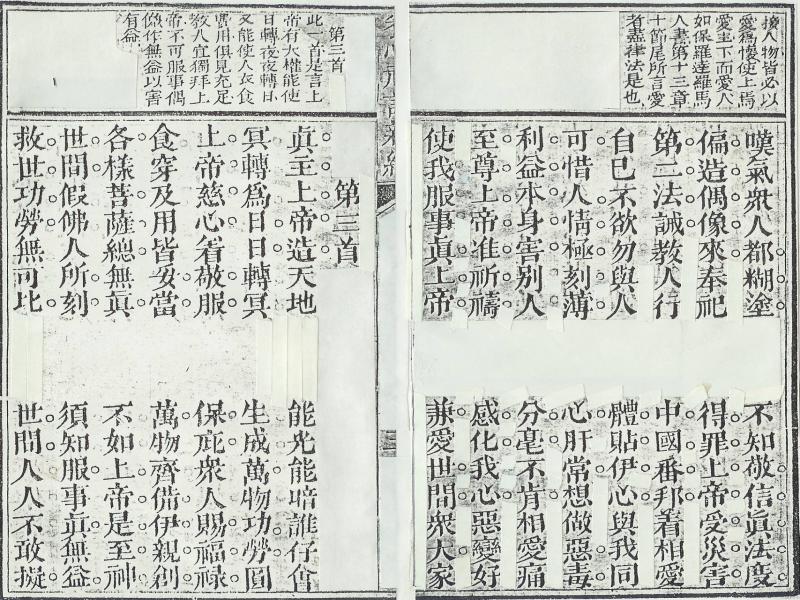 接人物皆必以
愛爲懷使上焉
愛主下而愛人
如保羅達羅馬
人書第十三章
十節尾所言愛
者盡律法是也
嘆氣衆人都糊塗
不知敬信眞法度
偏造偶像來奉祀
得罪上帝受災害
第二法誡教人行
中國番邦着相愛
自己不欲勿與人
體貼伊心與我同
可惜人情極刻薄
心肝常想做惡毒
利益本身害別人
分毫不肯相愛痛
至尊上帝准祈禱
感化我心惡變好
使我服事眞上帝
兼愛世間衆大家
第三首
此一首是言上
帝有大權能使
日轉夜夜轉日
又能使人衣食
費用俱見充足
教人宜獨拜上
帝不可服事偶
像作無益以害
有益
第三首
眞主上帝造天地
能光能暗誰仔會
冥轉爲日日轉冥
生成萬物功勞圓
上帝慈心看敬服
保庇衆人賜福祿
食穿及用皆妥當
萬物齊備伊親創
各樣菩薩總無眞
不如上帝是至神
世間假佛人所刻
須知服事眞無益
救世功勞無可比
世間人人不敢擬